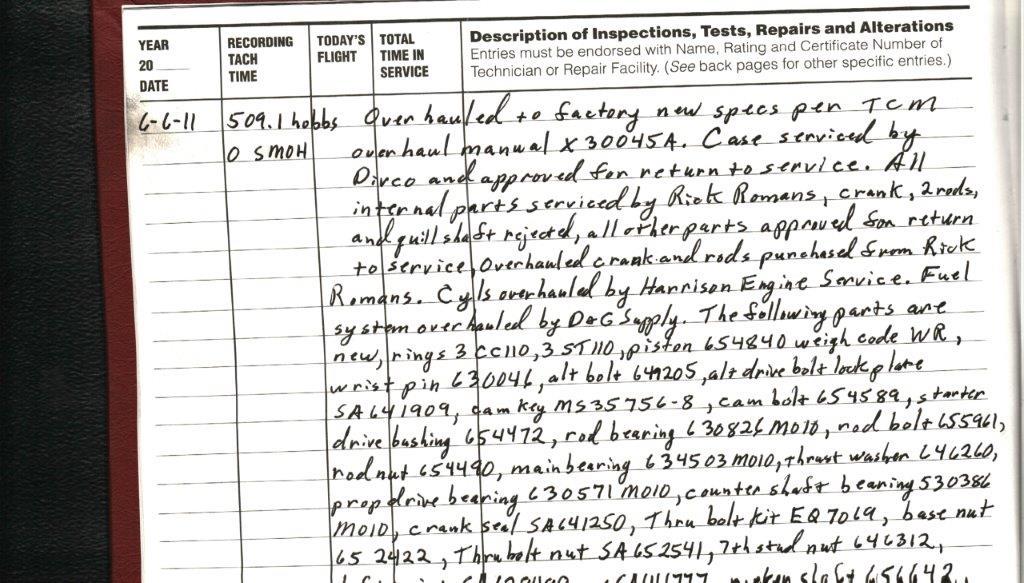 YEAR
20
DATE
RECORDING
TACH
TIME
TODAY'S
FLIGHT
TOTAL
TIME IN
SERVICE
Description of Inspections, Tests, Repairs and Alterations
Entries must be endorsed with Name, Rating and Certificate Number of
Technician or Repair Facility. (See back pages for other specific entries.)
6-6-11 509.1 hobbs Overhauled to factory new specs per TCM
0 SMOH overhaul manual X30045A. Case serviced by
Divco and approved for return to service. All
internal parts serviced by Rick Romans, crank, 2 rods,
and quill shaft rejected, all other parts approved for return
to service, Overhauled crank and rods purchased from Rick
Romans. Cyls overhauled by Harrison Engine Service. Fuel
system overhauled by D&G Supply. The following parts are
new, rings 3 CC110, 3 ST110, piston 654840 weigh code WR,
wrist pin 630046, alt bolt 649205, alt drive bolt lock plate
SA641909, cam key MS35756-8, cam bolt 654589, starter
drive bushing 654472, rod bearing 630826 M010, rod bolt 655961,
rod nut 654490, main bearing 634503 M010, thrust washer 646260,
prop drive bearing 630571 M010, counter shaft bearing 530386
M010, crank seal SA641250, Thru bolt kit EQ7069, base nut
652422, Thru bolt nut SA652541, 7th stud nut 646312,
shaft 656642,